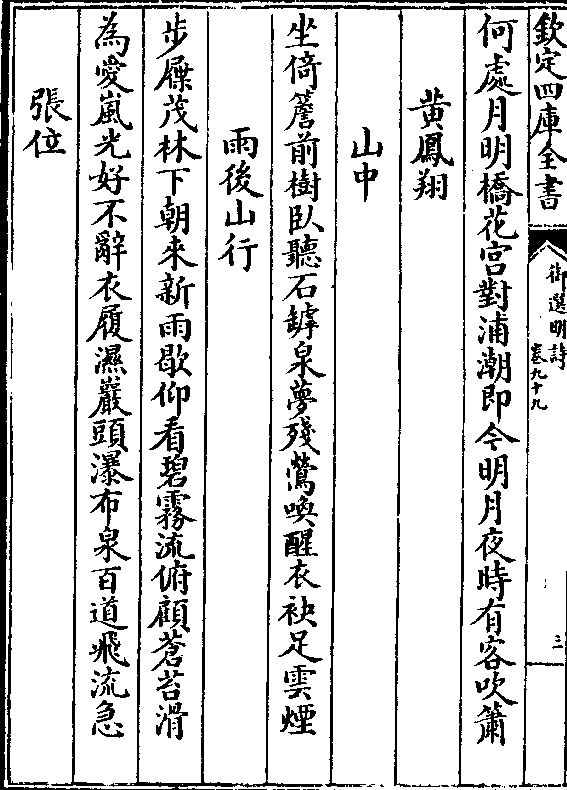 欽定四庫全書
御選明詩
卷九十九
三
何處月明橋花宮對浦潮即今明月夜時有客吹簫
黃鳳翔
山中
坐倚簷前樹臥聽石罅泉夢殘鶯喚醒衣袂足雲煙
雨後山行
步屧茂林下朝来新雨歇仰看碧霧流俯顧蒼苔滑
為愛嵐光好不辭衣履濕巖頭瀑布泉百道飛流急
張位